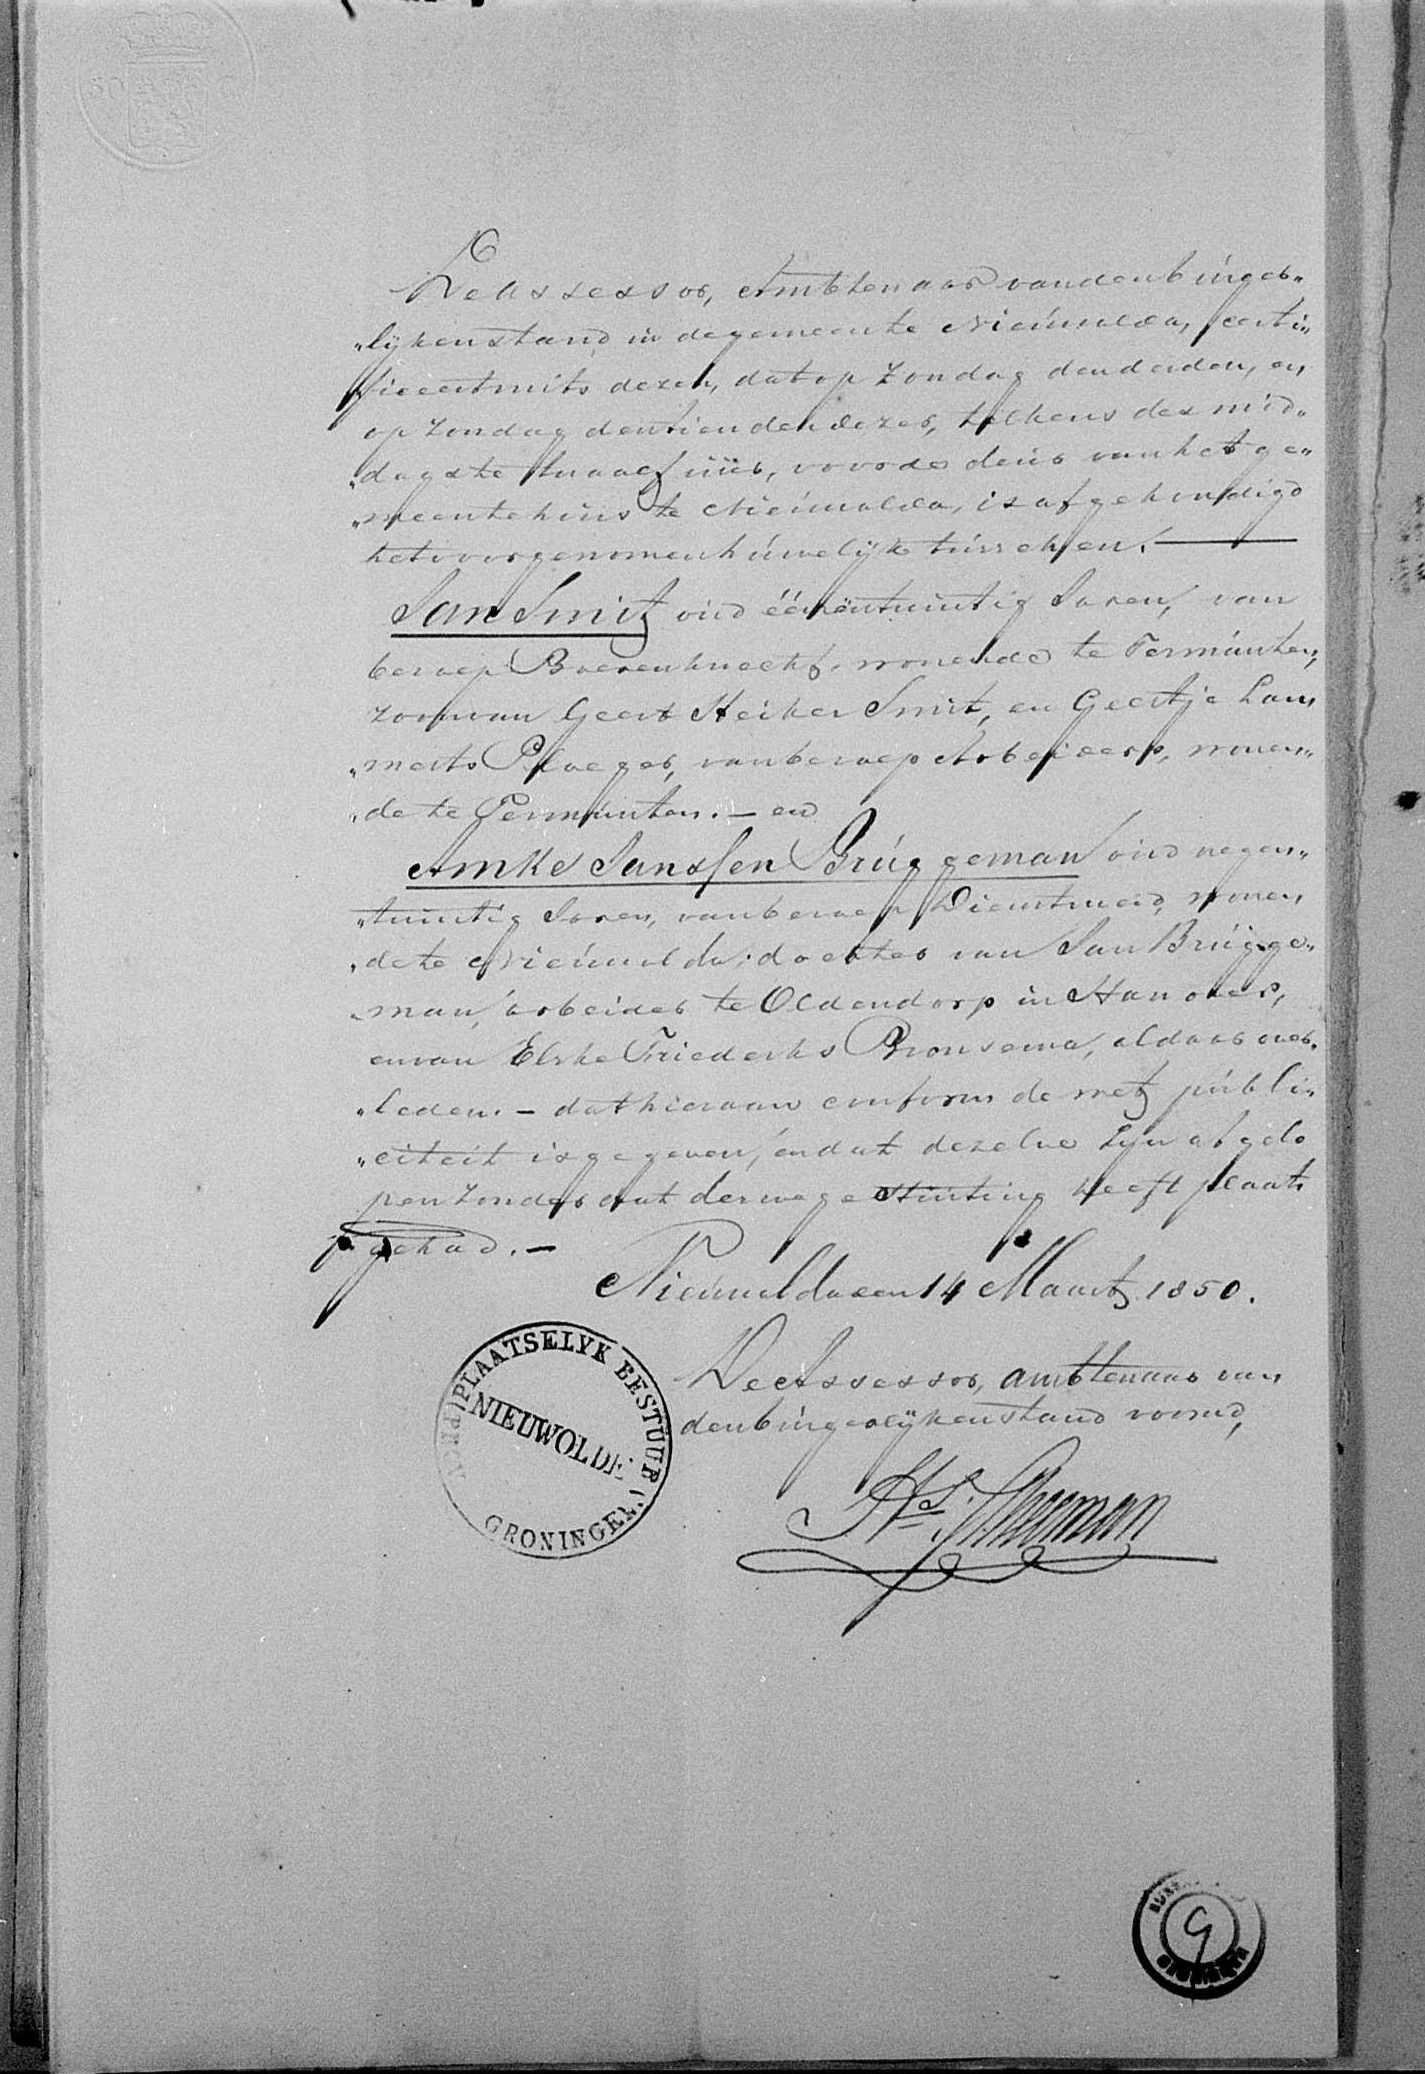 De Assessor, Ambtenaar van den burger„
„lijken stand in de gemeente Nieuwolda, certi„
ficeert mits dezen, dat op Zondag den derden, en
op Zondag den tienden dezer, telkens des mid„
„dags te twaalf uur, voor de deur van het ge„
„meentehuis te Nieuwolda, is afgekondigd
het voorgenomen huwelijk tusschen. —
Jan Smit, oud éénentwintig Jaren, van
beroep Boerenknecht, wonende te Termunten,
zoon van Geert Heikes Smit, en Geertje Lam
„merts Ploeger, van beroep Arbeiders, wonen„
„de te Termunten. — en
Amke Janssen Brúggeman oud negen„
„twintig Jaren, van beroep Dienstmeid, wonen
„de te Nieuwolda, dochter van Jan Brúgge„
„man, arbeider te Oldendorp in Hanover,
en van Elske Friederks Bronsema, aldaar over„
„leden. — dat hieraan conform de wet publi„
„citeit is gegeven, en dat dezelve zijn afgelo
pen zonder dat derwege stuiting heeft plaats
gehad. —
Nieuwolda den 14 Maart 1850.
De Assessor, ambtenaar van
den burgerlijken stand voornd,
PLAATSELYK BESTUUR
NIEUWOLDE
GRONINGEN
9